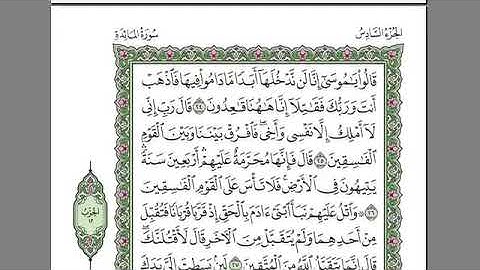 الجُزْءُ السَّادِسُ
سُورَةُ المَائِدَةِ
قَالُواْ يَٰمُوسَىٰٓ إِنَّا لَن نَّدۡخُلَهَآ أَبَدٗا مَّا دَامُواْ فِيهَا فَٱذۡهَبۡ
أَنتَ وَرَبُّكَ فَقَٰتِلَآ إِنَّا هَٰهُنَا قَٰعِدُونَ ٢٤ قَالَ رَبِّ إِنِّي
لَآ أَمۡلِكُ إِلَّا نَفۡسِي وَأَخِيۖ فَٱفۡرُقۡ بَيۡنَنَا وَبَيۡنَ ٱلۡقَوۡمِ
ٱلۡفَٰسِقِينَ ٢٥ قَالَ فَإِنَّهَا مُحَرَّمَةٌ عَلَيۡهِمۡۛ أَرۡبَعِينَ سَنَةٗۛ
يَتِيهُونَ فِي ٱلۡأَرۡضِۚ فَلَا تَأۡسَ عَلَى ٱلۡقَوۡمِ ٱلۡفَٰسِقِينَ
٢٦ ۞ وَٱتۡلُ عَلَيۡهِمۡ نَبَأَ ٱبۡنَيۡ ءَادَمَ بِٱلۡحَقِّ إِذۡ قَرَّبَا قُرۡبَانٗا فَتُقُبِّلَ
مِنۡ أَحَدِهِمَا وَلَمۡ يُتَقَبَّلۡ مِنَ ٱلۡأٓخَرِ قَالَ لَأَقۡتُلَنَّكَۖ
قَالَ إِنَّمَا يَتَقَبَّلُ ٱللَّهُ مِنَ ٱلۡمُتَّقِينَ ٢٧ لَئِنۢ بَسَطتَ إِلَيَّ يَدَكَ
الحِزْبُ
١٢